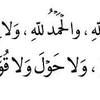 لِلّٰهِ ، وَالْحَمْدُ لِلّٰهِ ، وَلَا
، وَلَا حَوْلَ وَلَا